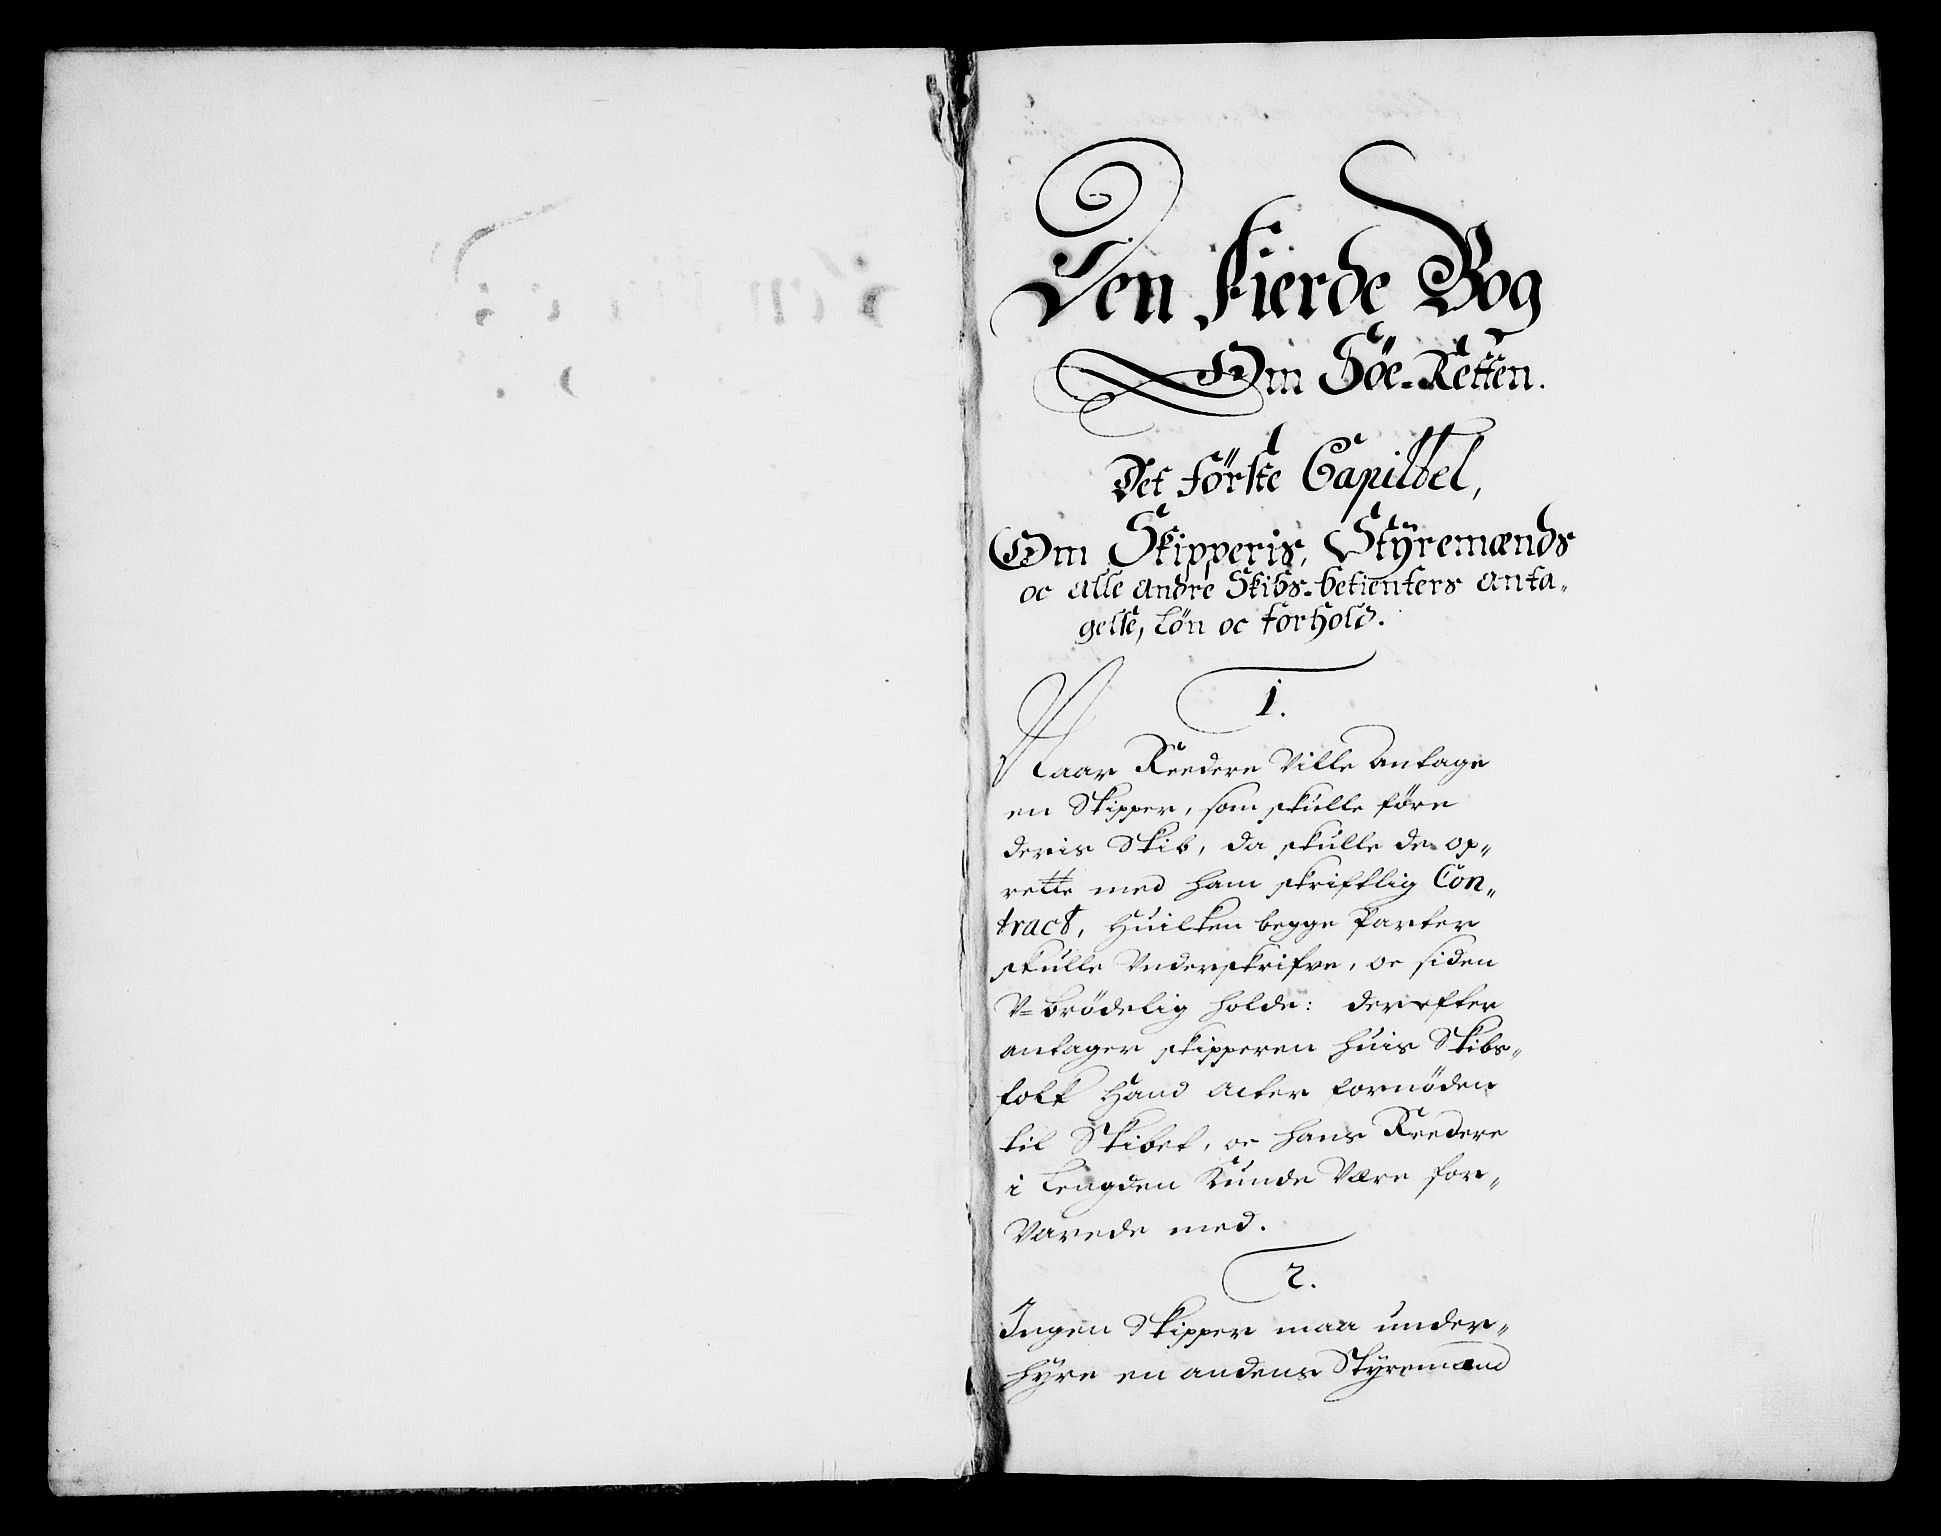 Den Fierde Bog
Om Söe-Retten.
Det Förste Capittel,
Om Skipperis, Styremænds
oc alle andre Skibs-betienters anta„
gelse, Lön oc Forhold.
1.
Naar Reedere Ville antage
en Skipper, som skulle före
deris Skib, da skulle de op„
rette med ham skriftlig Con„
tract, Huilken begge Parter
skulle Underskrifve, oc siden
U-brödelig holde: derefter
antager skipperen huis Skibs„
folk Hand acter fornöden
til Skibet, oc hans Reedere
i Lengden Kunde Være for„
Varede med.
2.
Ingen Skipper maa under„
hyre en andens Styremænd